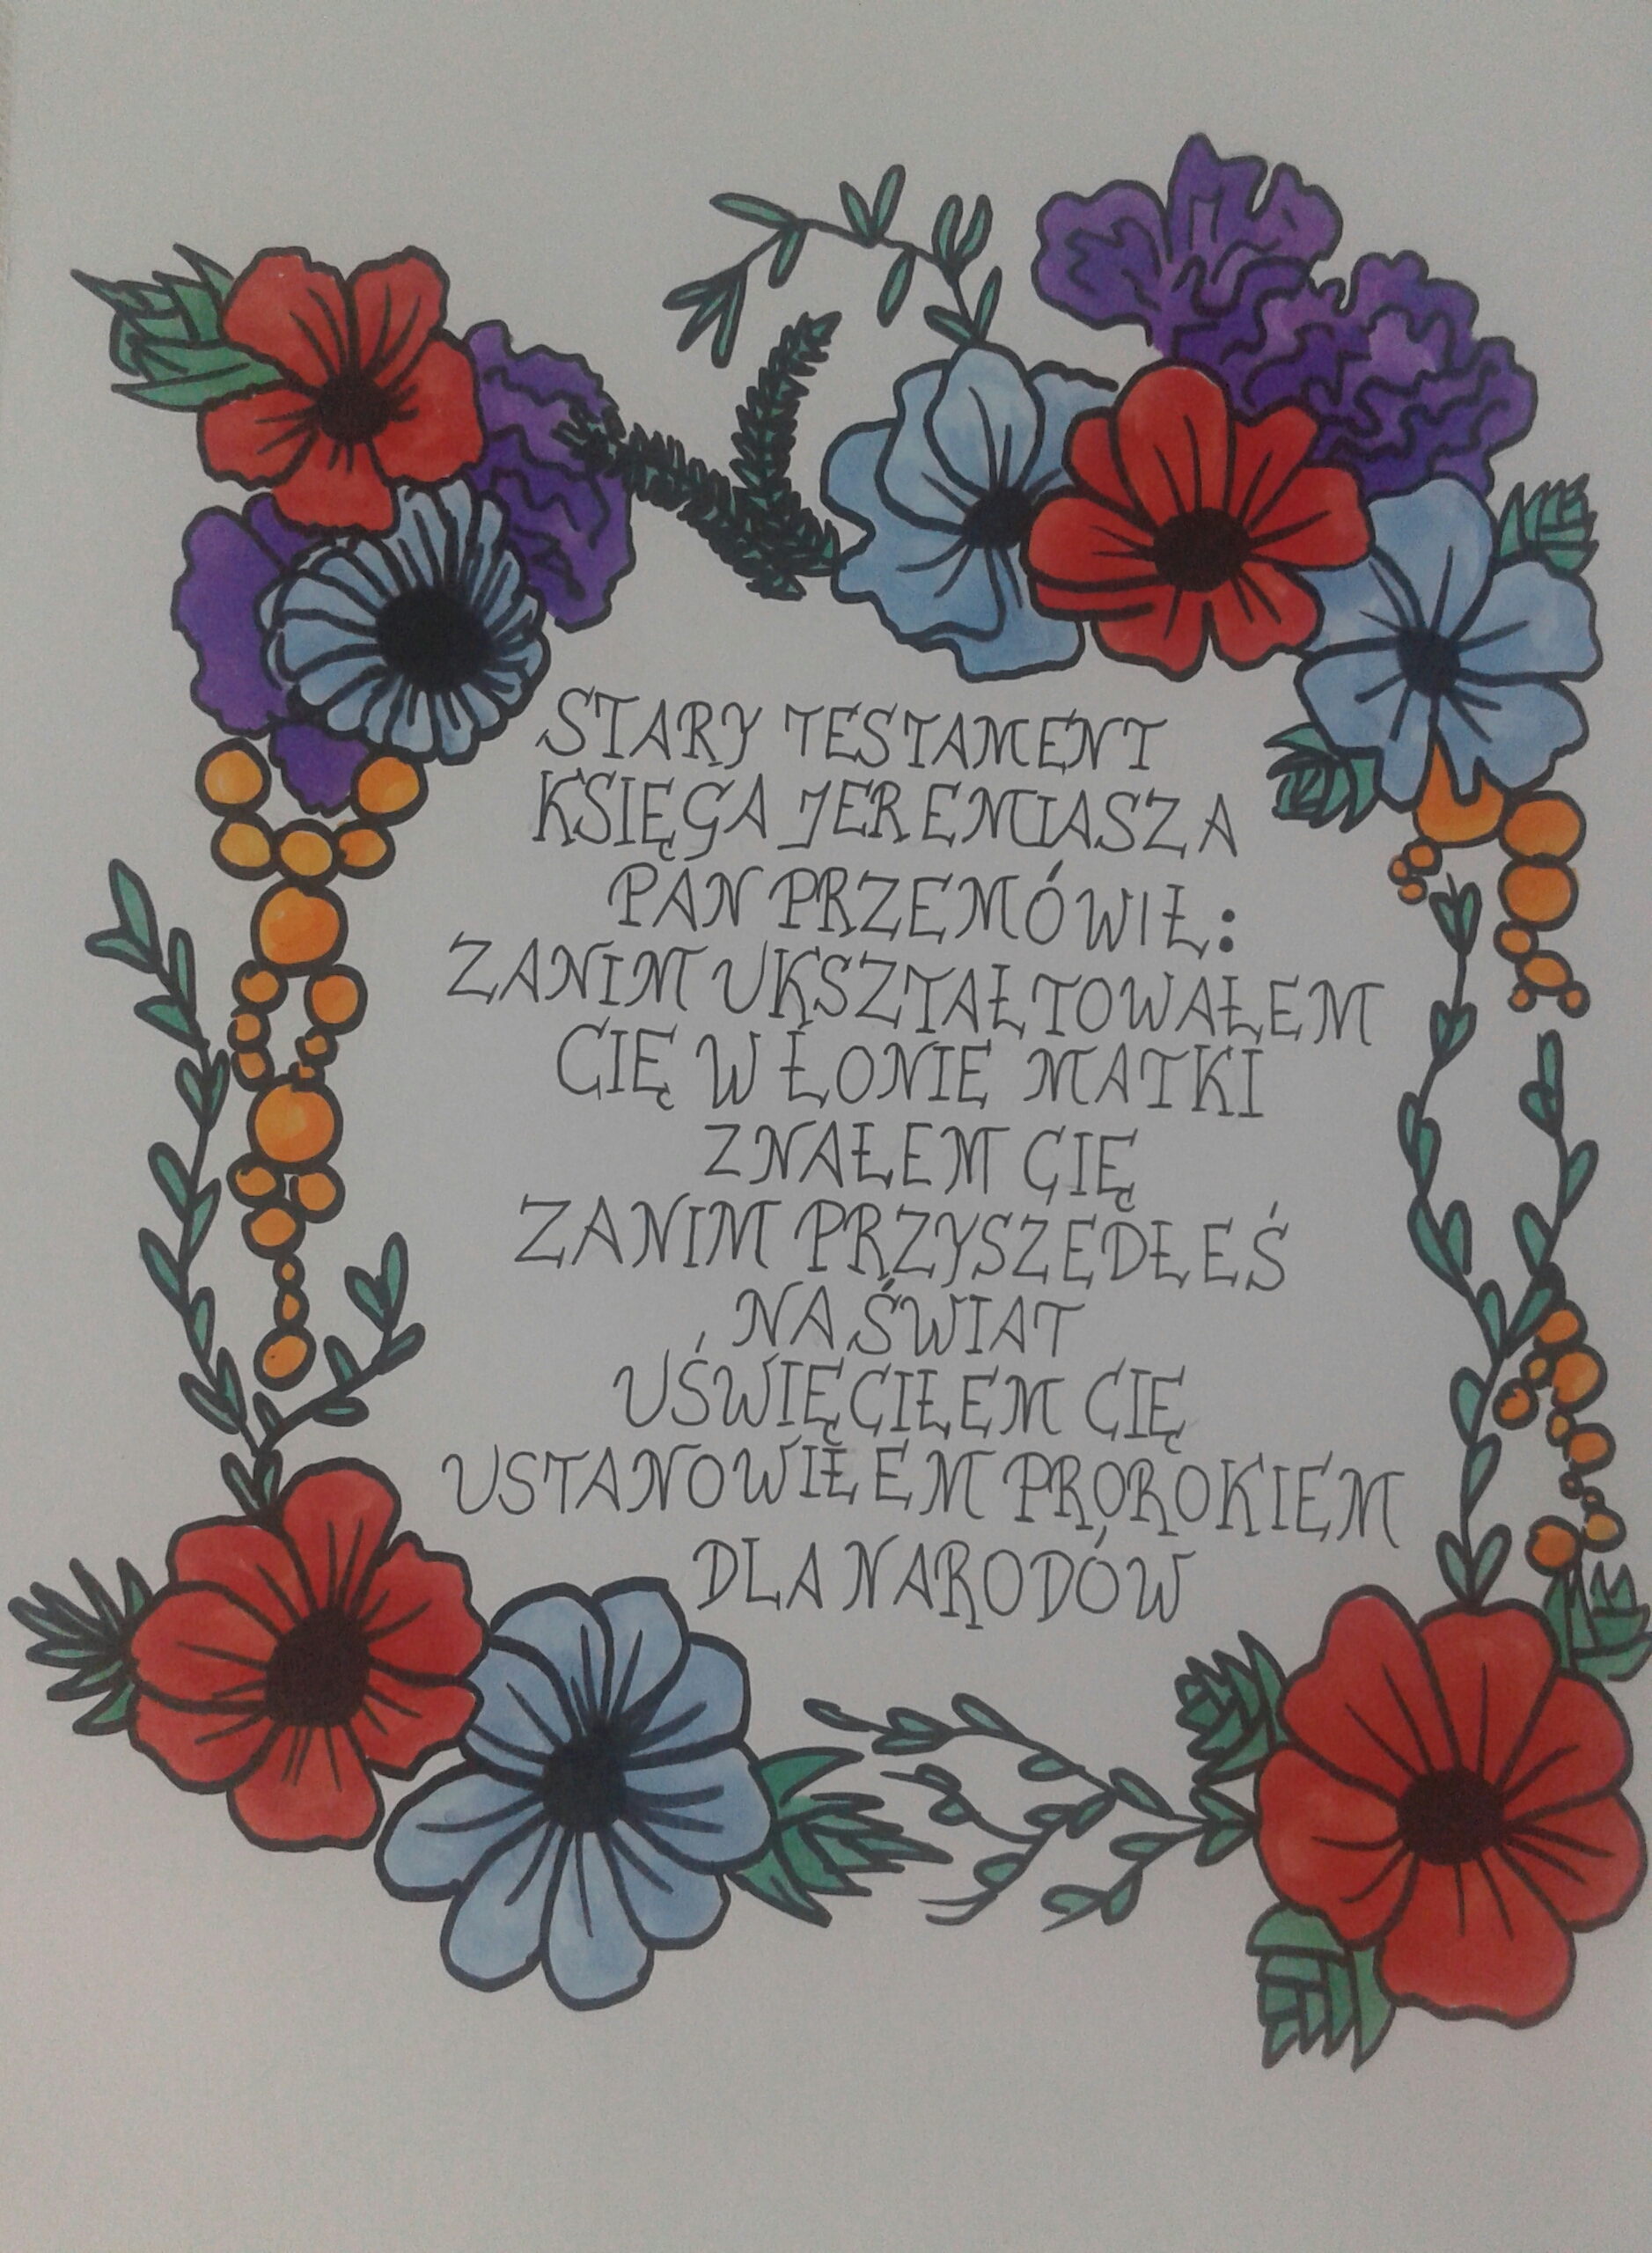 STARY TESTAMENT
KSIĘGA JEREMIASZA
PAN PRZEMÓWIŁ:
ZANIM UKSZTAŁTOWAŁEM
CIĘ W ŁONIE MATKI
ZNAŁEM CIĘ
ZANIM PRZYSZEDŁEŚ
NA ŚWIAT
UŚWIĘCIŁEM CIĘ
USTANOWIŁEM PROROKIEM
DLA NARODÓW